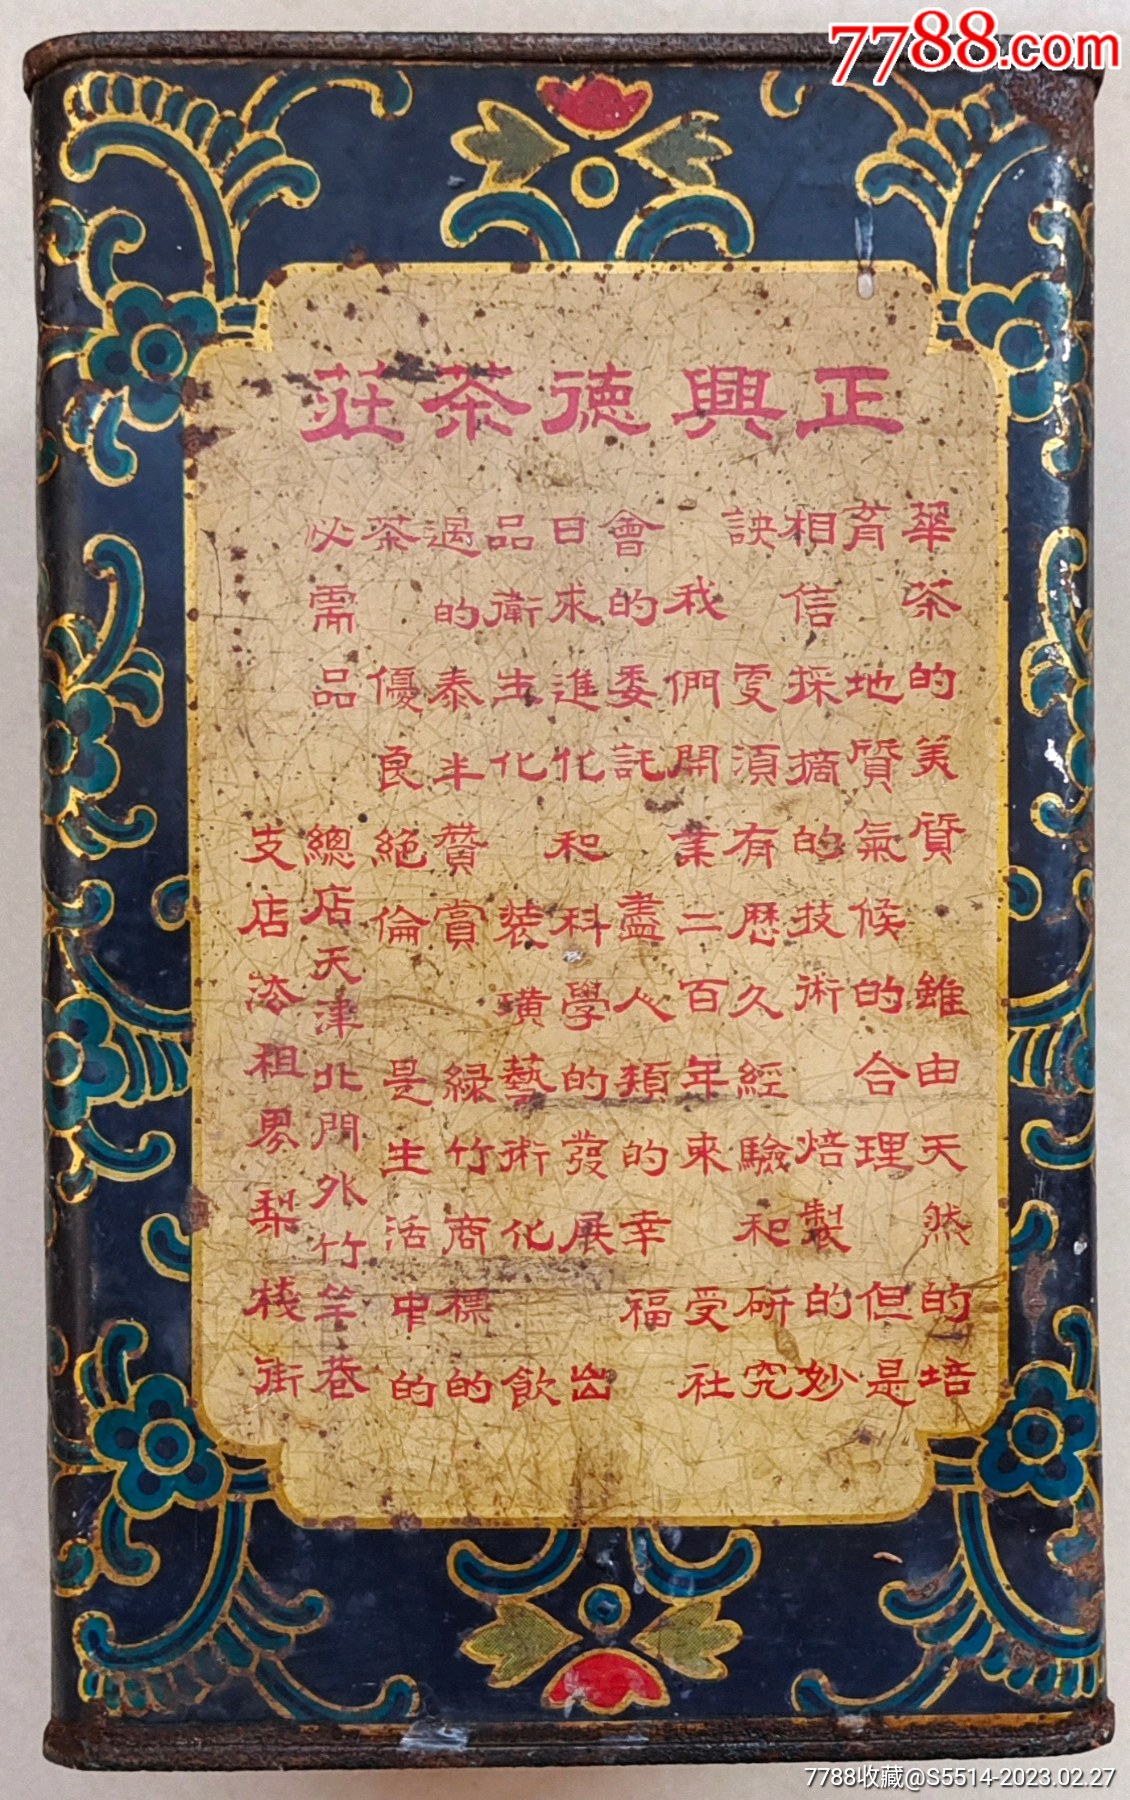 7788.com
正興德茶莊
華茶的美質 雖由天然的培
育 地質氣候的合理 但是
相信採摘的技術 焙製的妙
訣 要須有歷久經驗和研究
我們開業二百年來 受社
會的委託 盡人類的幸福
日求進化 和科學的發展 出
品衛生化 裝璜藝術化 飲
過的泰半贊賞 綠竹商標的
茶 優良絕倫 是生活中的
必需品 總店天津北門外竹竿巷
支店法租界梨棧街
7788收藏@S5514-2023.02.27